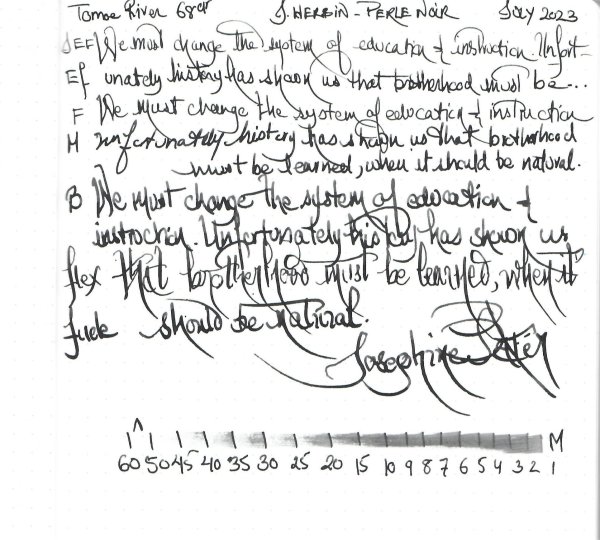 Tomoe River 68gr J. HERBIN - PERLE NOIR JULY 2023
SEF We must change the system of education & instruction. Unfort-
EF unately history has shown us that brotherhood must be...
F We must change the system of education & instruction
M unfortunately, history has shown us that brotherhood
must be learned, when it should be natural.
B We must change the system of education &
instruction. Unfortunately history has shown us
flex that brotherhood must be learned, when it
fude should be natural.
Josephine
60 50 45 40 35 30 25 20 15 10 9 8 7 6 5 4 3 2 1
M